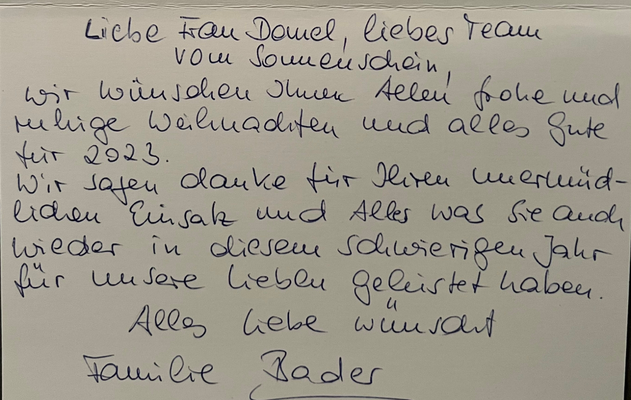 Liebe Frau Domel, liebes Team
vom Sonnenschein,
wir wünschen Ihnen Allen frohe und
ruhige Weihnachten und alles Gute
für 2023.
Wir sagen danke für Ihren unermüd-
lichen Einsatz und Alles was Sie auch
wieder in diesem schwierigen Jahr
für unsere Lieben geleistet haben.
Alles Liebe wünscht
Familie Bader